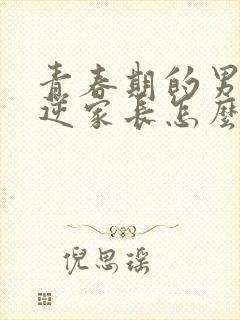 青春期的男
逆家长怎麼
倪思瑶